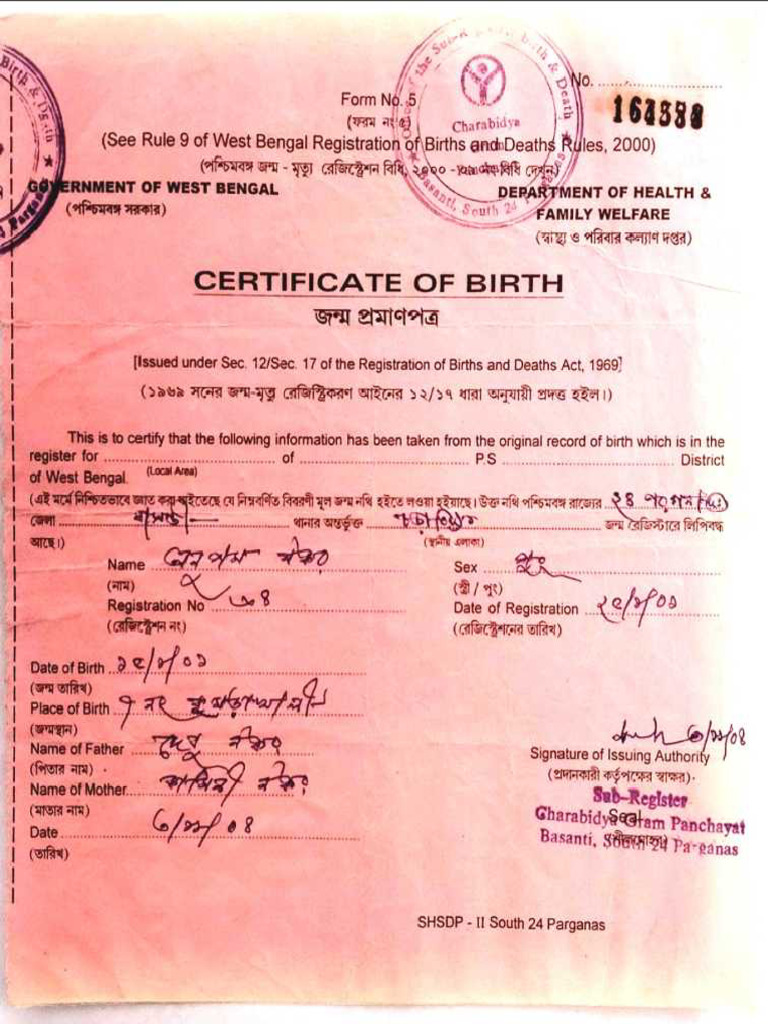 No. ........................
164388
Form No. 5
(ফরম নং ৫)
(See Rule 9 of West Bengal Registration of Births and Deaths Rules, 2000)
(পশ্চিমবঙ্গ জন্ম - মৃত্যু রেজিস্ট্রেশন বিধি, ২০০০ - বিধি দেখুন)
GOVERNMENT OF WEST BENGAL
(পশ্চিমবঙ্গ সরকার)
DEPARTMENT OF HEALTH &
FAMILY WELFARE
(স্বাস্থ্য ও পরিবার কল্যাণ দপ্তর)
Birth & Death
Sub-R Birth & Death
Charabidya
Basanti, South 24 Parganas
CERTIFICATE OF BIRTH
জন্ম প্রমাণপত্র
[Issued under Sec. 12/Sec. 17 of the Registration of Births and Deaths Act, 1969]
(১৯৬৯ সনের জন্ম-মৃত্যু রেজিস্ট্রিকরণ আইনের ১২/১৭ ধারা অনুযায়ী প্রদত্ত হইল।)
This is to certify that the following information has been taken from the original record of birth which is in the
register for ........................ of ........................ P.S ........................ District
of West Bengal. (Local Area)
(এই মর্মে নিশ্চিতভাবে জ্ঞাত করা হইতেছে যে নিম্নবর্ণিত বিবরণী মূল জন্ম নথি হইতে লওয়া হইয়াছে। উক্ত নথি পশ্চিমবঙ্গ রাজ্যের ২৪ পরগনা
জেলা বাসন্তী থানার অন্তর্ভুক্ত জন্ম রেজিস্টারে লিপিবদ্ধ
আছে।) (স্থানীয় এলাকা)
Name নস্কর
(নাম)
Sex পুং
(স্ত্রী / পুং)
Registration No ৩৪
(রেজিস্ট্রেশন নং)
Date of Registration
(রেজিস্ট্রেশনের তারিখ)
Date of Birth
(জন্ম তারিখ)
Place of Birth ৭ নং
(জন্মস্থান)
Name of Father দেবু নস্কর
(পিতার নাম)
Name of Mother নস্কর
(মাতার নাম)
Date
(তারিখ)
Signature of Issuing Authority
(প্রদানকারী কর্তৃপক্ষের স্বাক্ষর)
Sub-Register
Seal
Charabidya Gram Panchayat
Basanti, South 24 Parganas
SHSDP - II South 24 Parganas